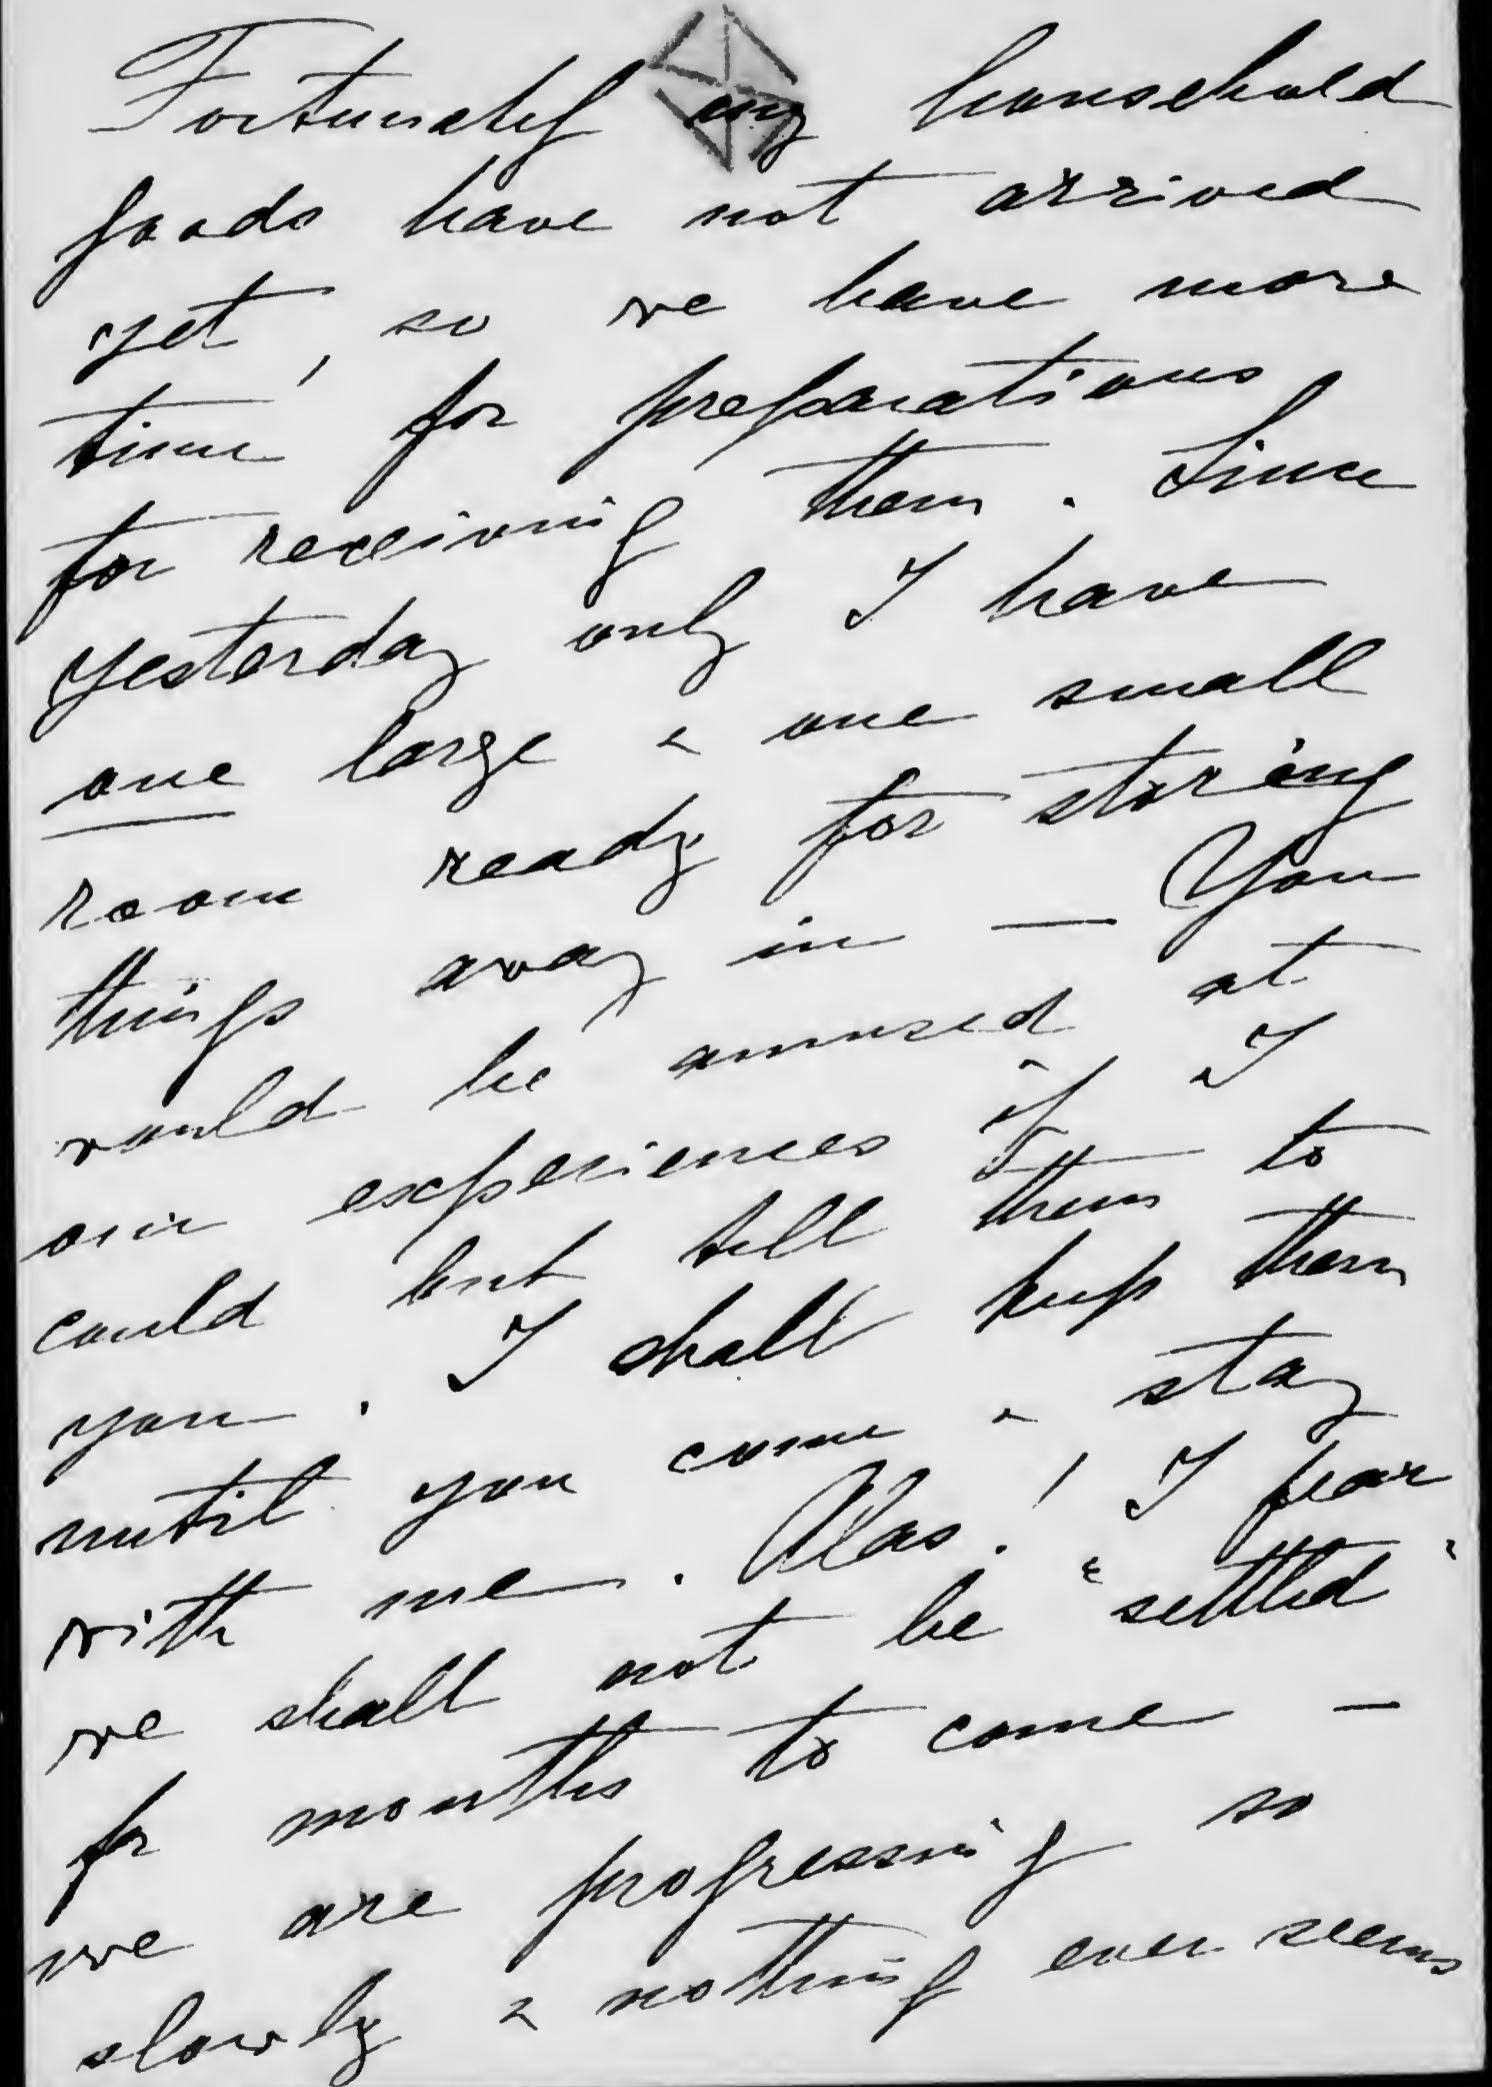 Fortunately my household
goods have not arrived
yet, so we have more
time for preparations
for receiving them. Since
yesterday only I have
one large & one small
room ready for storing
things away in — You
would be amused at
our experiences if I
could but tell them to
you. I shall keep them
until you come & stay
with me. Alas! I fear
we shall not be "settled"
for months to come —
we are progressing so
slowly & nothing ever seems